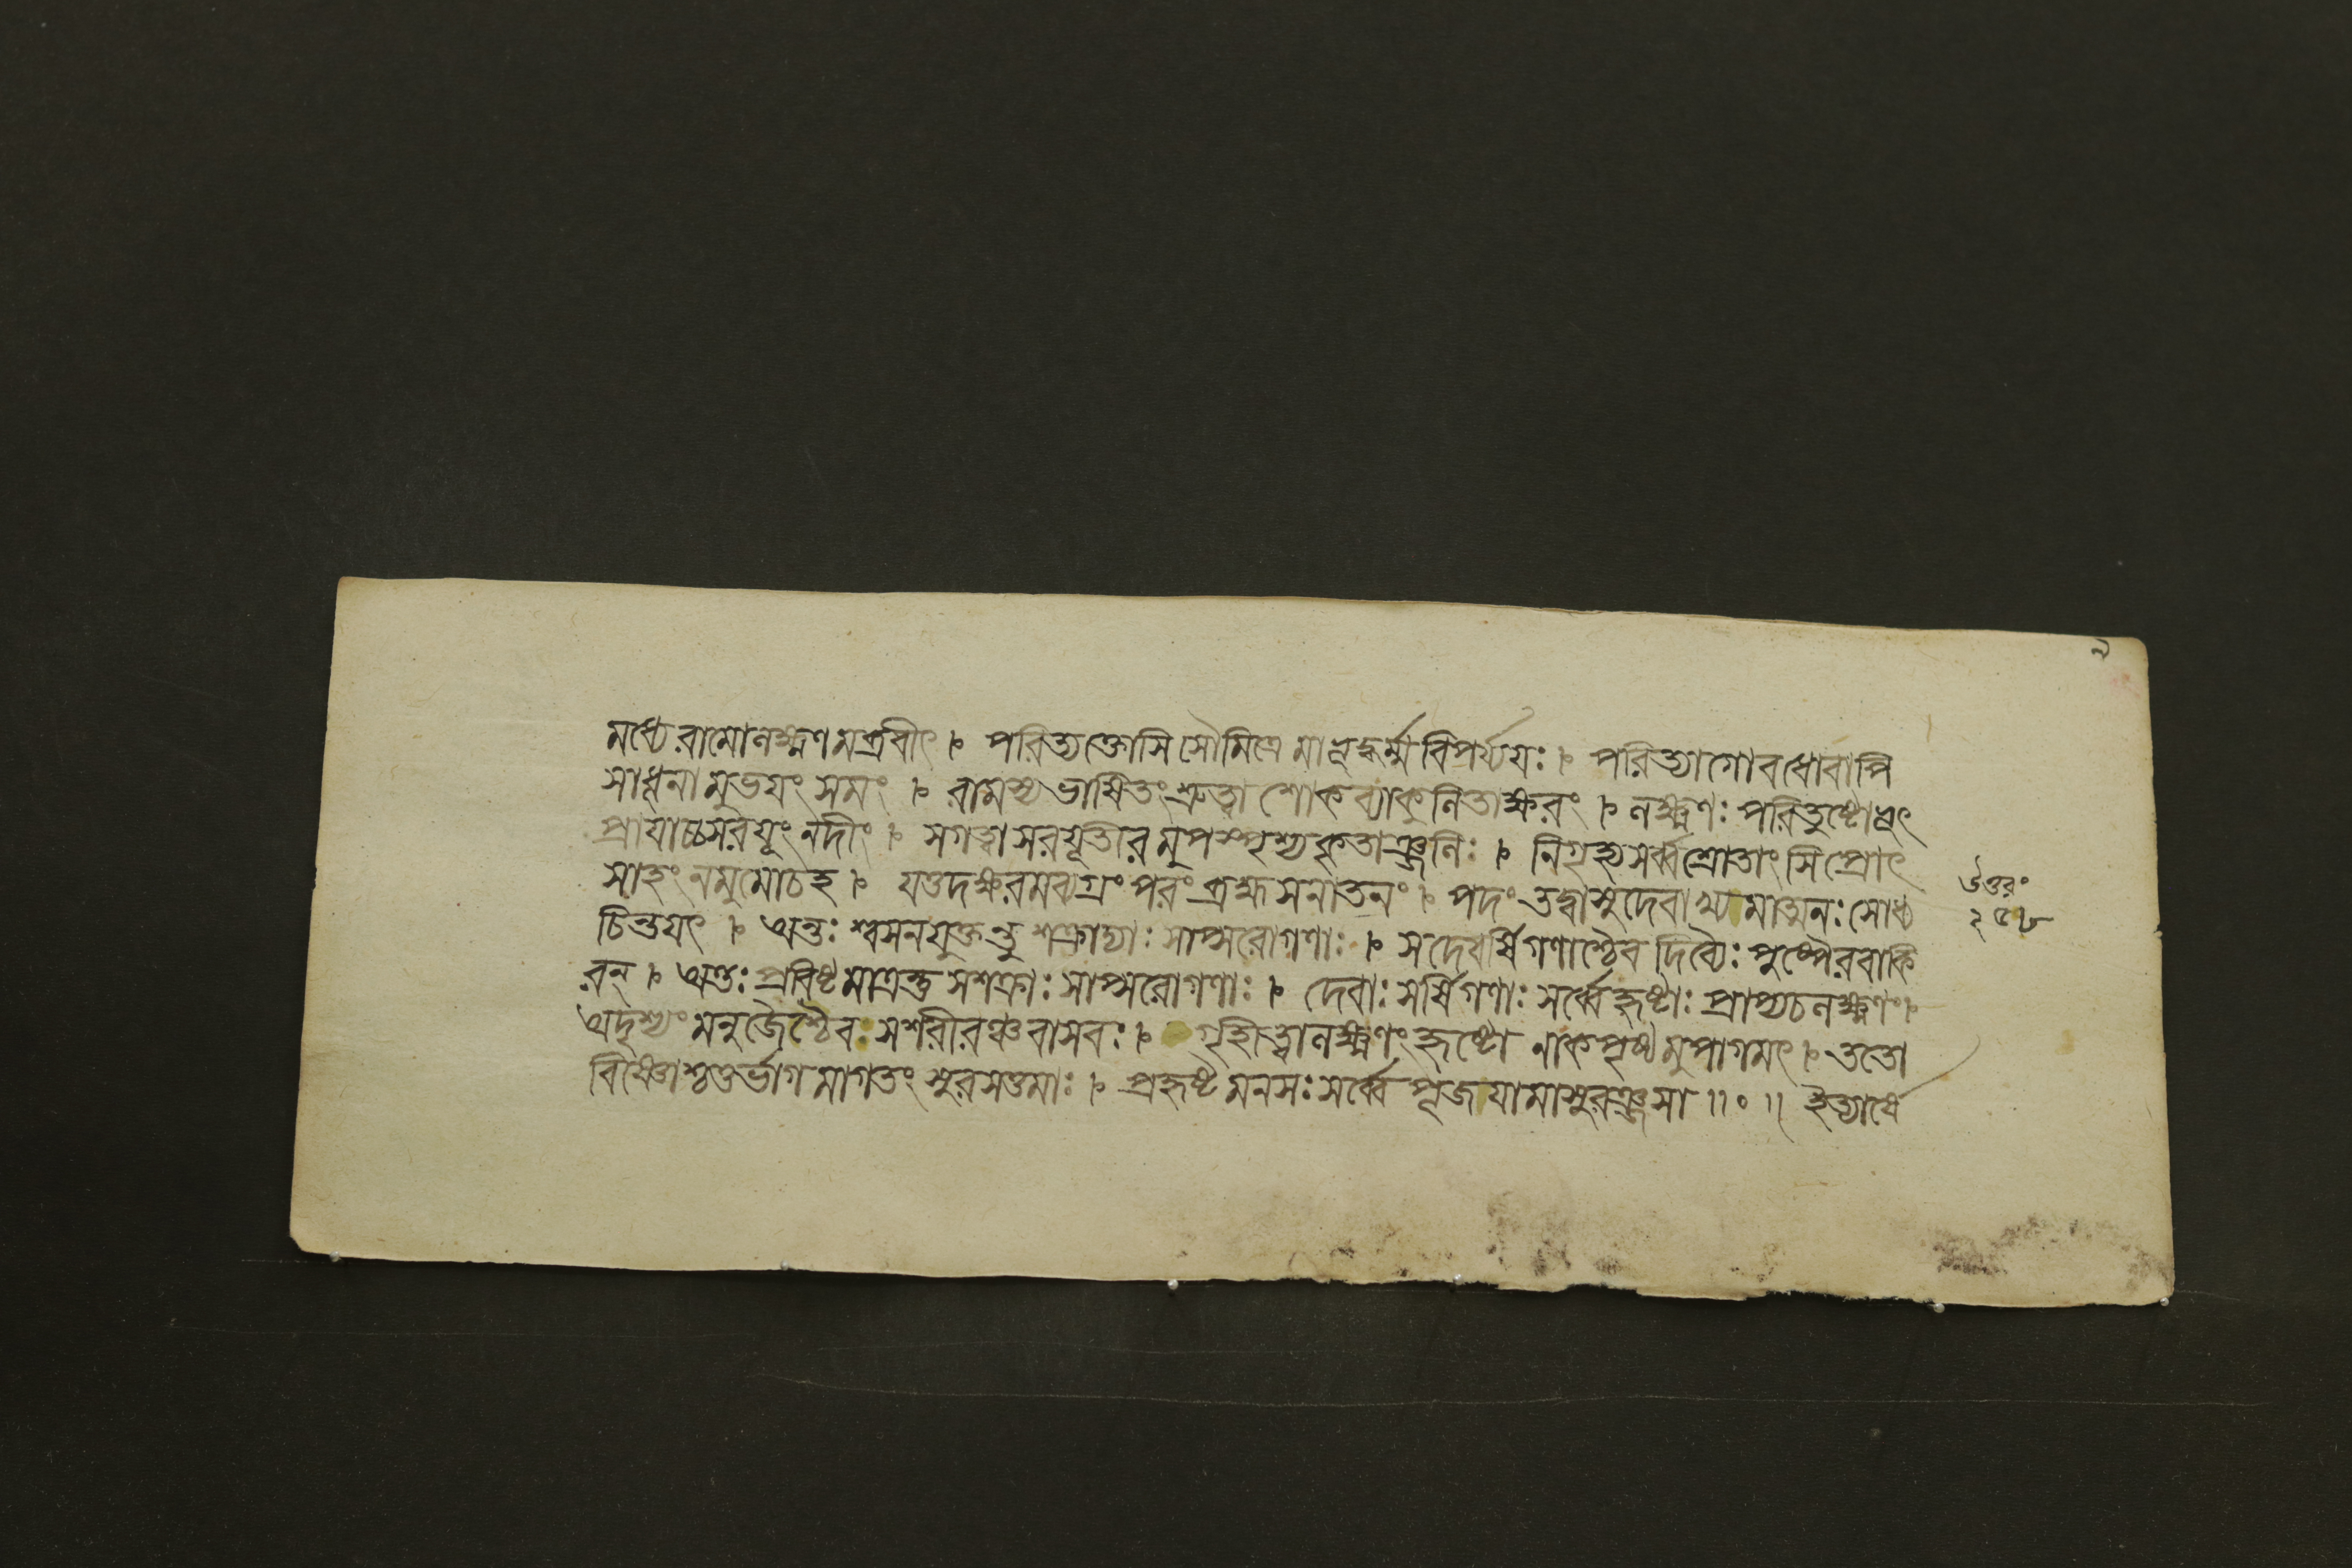 মধ্যে রামো লক্ষ্মণমব্রবীৎ । পরিত্যক্তোসি সৌমিত্রে মাভূদ্ধর্ম্মবিপর্য্যয়ঃ । পরিত্যাগো বধো বাপি
সাধূনামুভয়ং সমং । রামস্য ভাষিতং শ্রুত্বা শোকব্যাকুলিতাক্ষরং । লক্ষ্মণঃ পরিতুষ্টোভূৎ
প্রাযাচ্চ সরযূং নদীং । স গত্বা সরযূতীরমুপস্পৃশ্য কৃতাঞ্জলিঃ । নিগৃহ্য সর্ব্বশ্রোতাংসি প্রোৎ
সাহং ন মুমোচ হ । যত্তদক্ষরমব্যগ্রং পরং ব্রহ্ম সনাতনং । পদং তদ্বাসুদেবাখ্যমাত্মনঃ সোধ্য
চিন্তয়ৎ । অন্তঃশ্বসনযুক্তন্তু শক্রাদ্যাঃ সাপ্সরোগণাঃ । সদেবর্ষিগণাশ্চৈব দিব্যৈঃ পুষ্পৈরবাকি
রন্ । অন্তঃপ্রবিষ্টমাত্রন্তু সশক্রাঃ সাপ্সরোগণাঃ । দেবাঃ সর্ষিগণাঃ সর্ব্বে হৃষ্টাঃ প্রাপ্য চ লক্ষ্মণং ।
অদৃশ্যং মনুজৈশ্চৈব সশরীরঞ্চ বাসবঃ । গৃহীত্বা লক্ষ্মণং হৃষ্টো নাকপৃষ্ঠমুপাগমৎ । ততো
বিষ্ণোশ্চতুর্ভাগমাগতং সুরসত্তমাঃ । প্রহৃষ্টমনসঃ সর্ব্বে পূজয়ামাসুরঞ্জসা ॥ ० ॥ ইত্যার্ষে
উত্তরং
২৫৮